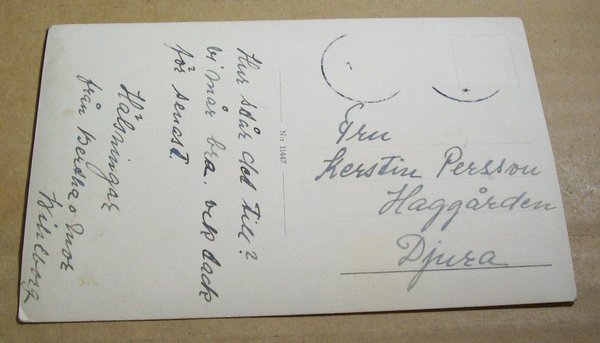 Hur står det till?
vi mår bra. och tack
för senast
Hälsningar
från Bertha o Thor
Kihlborg
N:r 11447
Fru
Kerstin Persson
Haggården
Djura